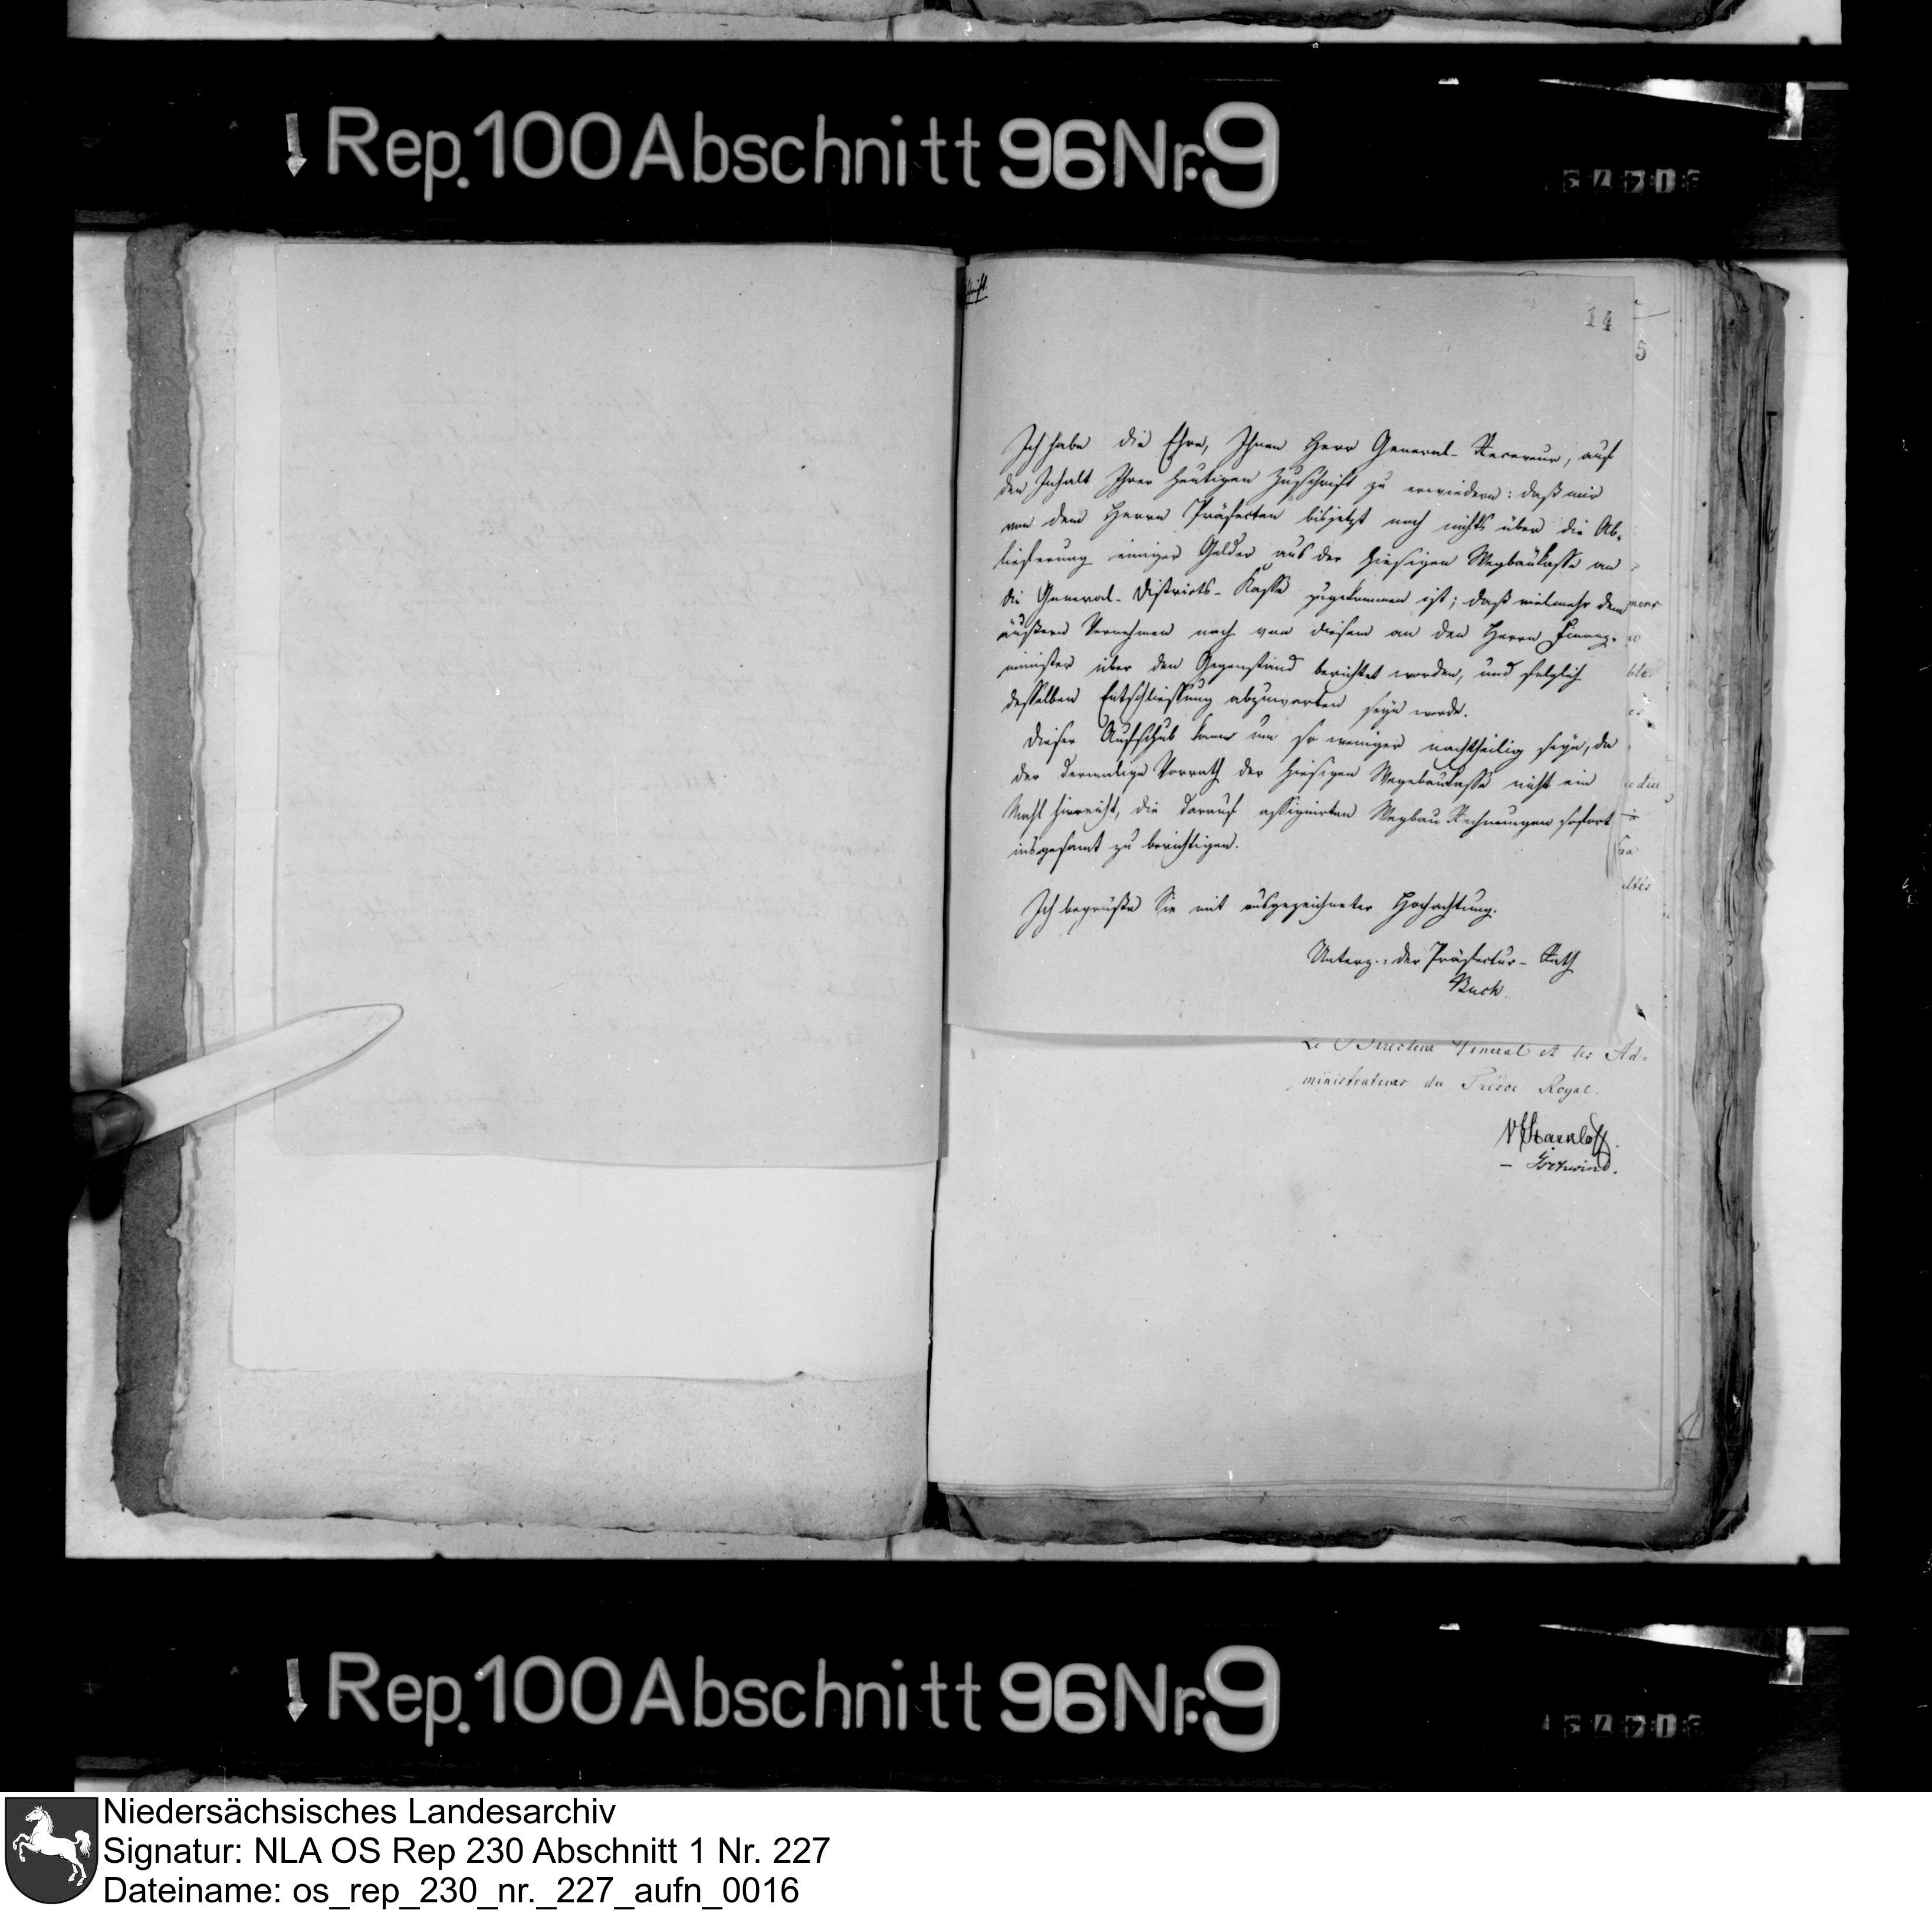 Rep. 100 Abschnitt 96 Nr. 9
14
5
Ich habe die Ehre, Ihnen Herr General-Receveur, auf
den Inhalt Ihrer heutigen Zuschrift zu erwiedern: daß mir
von dem Herrn Präfecten bis jetzt noch nichts über die Ab-
lieferung einiger Gelder aus der hiesigen Wegbaukasse an
die General-Districts-Kasse zugekommen ist; daß vielmehr dem
äußern Vernehmen nach von diesem an den Herrn Finanz-
minister über den Gegenstand berichtet worden, und folglich
desselben Entschliessung abzuwarten seyn werde.
Dieser Aufschub kann um so weniger nachtheilig seyn, da
der dermalige Vorrath der hiesigen Wegebaukasse nicht ein
Mahl hinreicht, die darauf assignirten Wegbau Rechnungen sofort
insgesamt zu berichtigen.
Ich begrüße Sie mit ausgezeichneter Hochachtung.
Unterz.: der Präfectur-Rath
Buch.
Le Directeur General et les Ad-
ministrateurs du Trésor Royal.
Rep. 100 Abschnitt 96 Nr. 9
Niedersächsisches Landesarchiv
Signatur: NLA OS Rep 230 Abschnitt 1 Nr. 227
Dateiname: os_rep_230_nr._227_aufn_0016